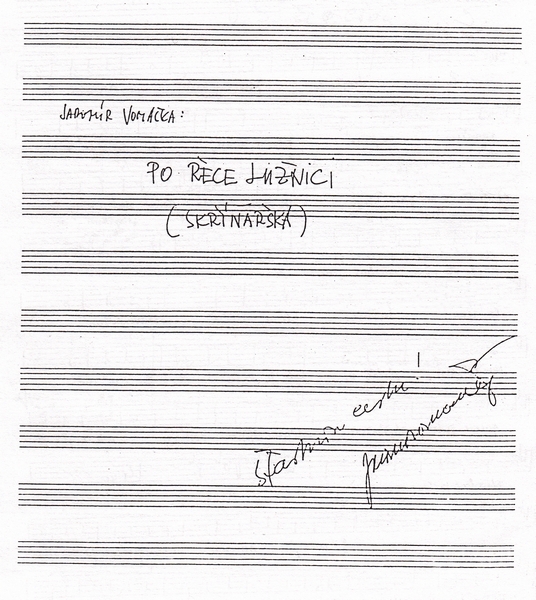 JAROMÍR VOMÁČKA:
PO ŘECE LUŽNICI
(SKRÝNÁRSKÁ)
Šťastnou cestu!